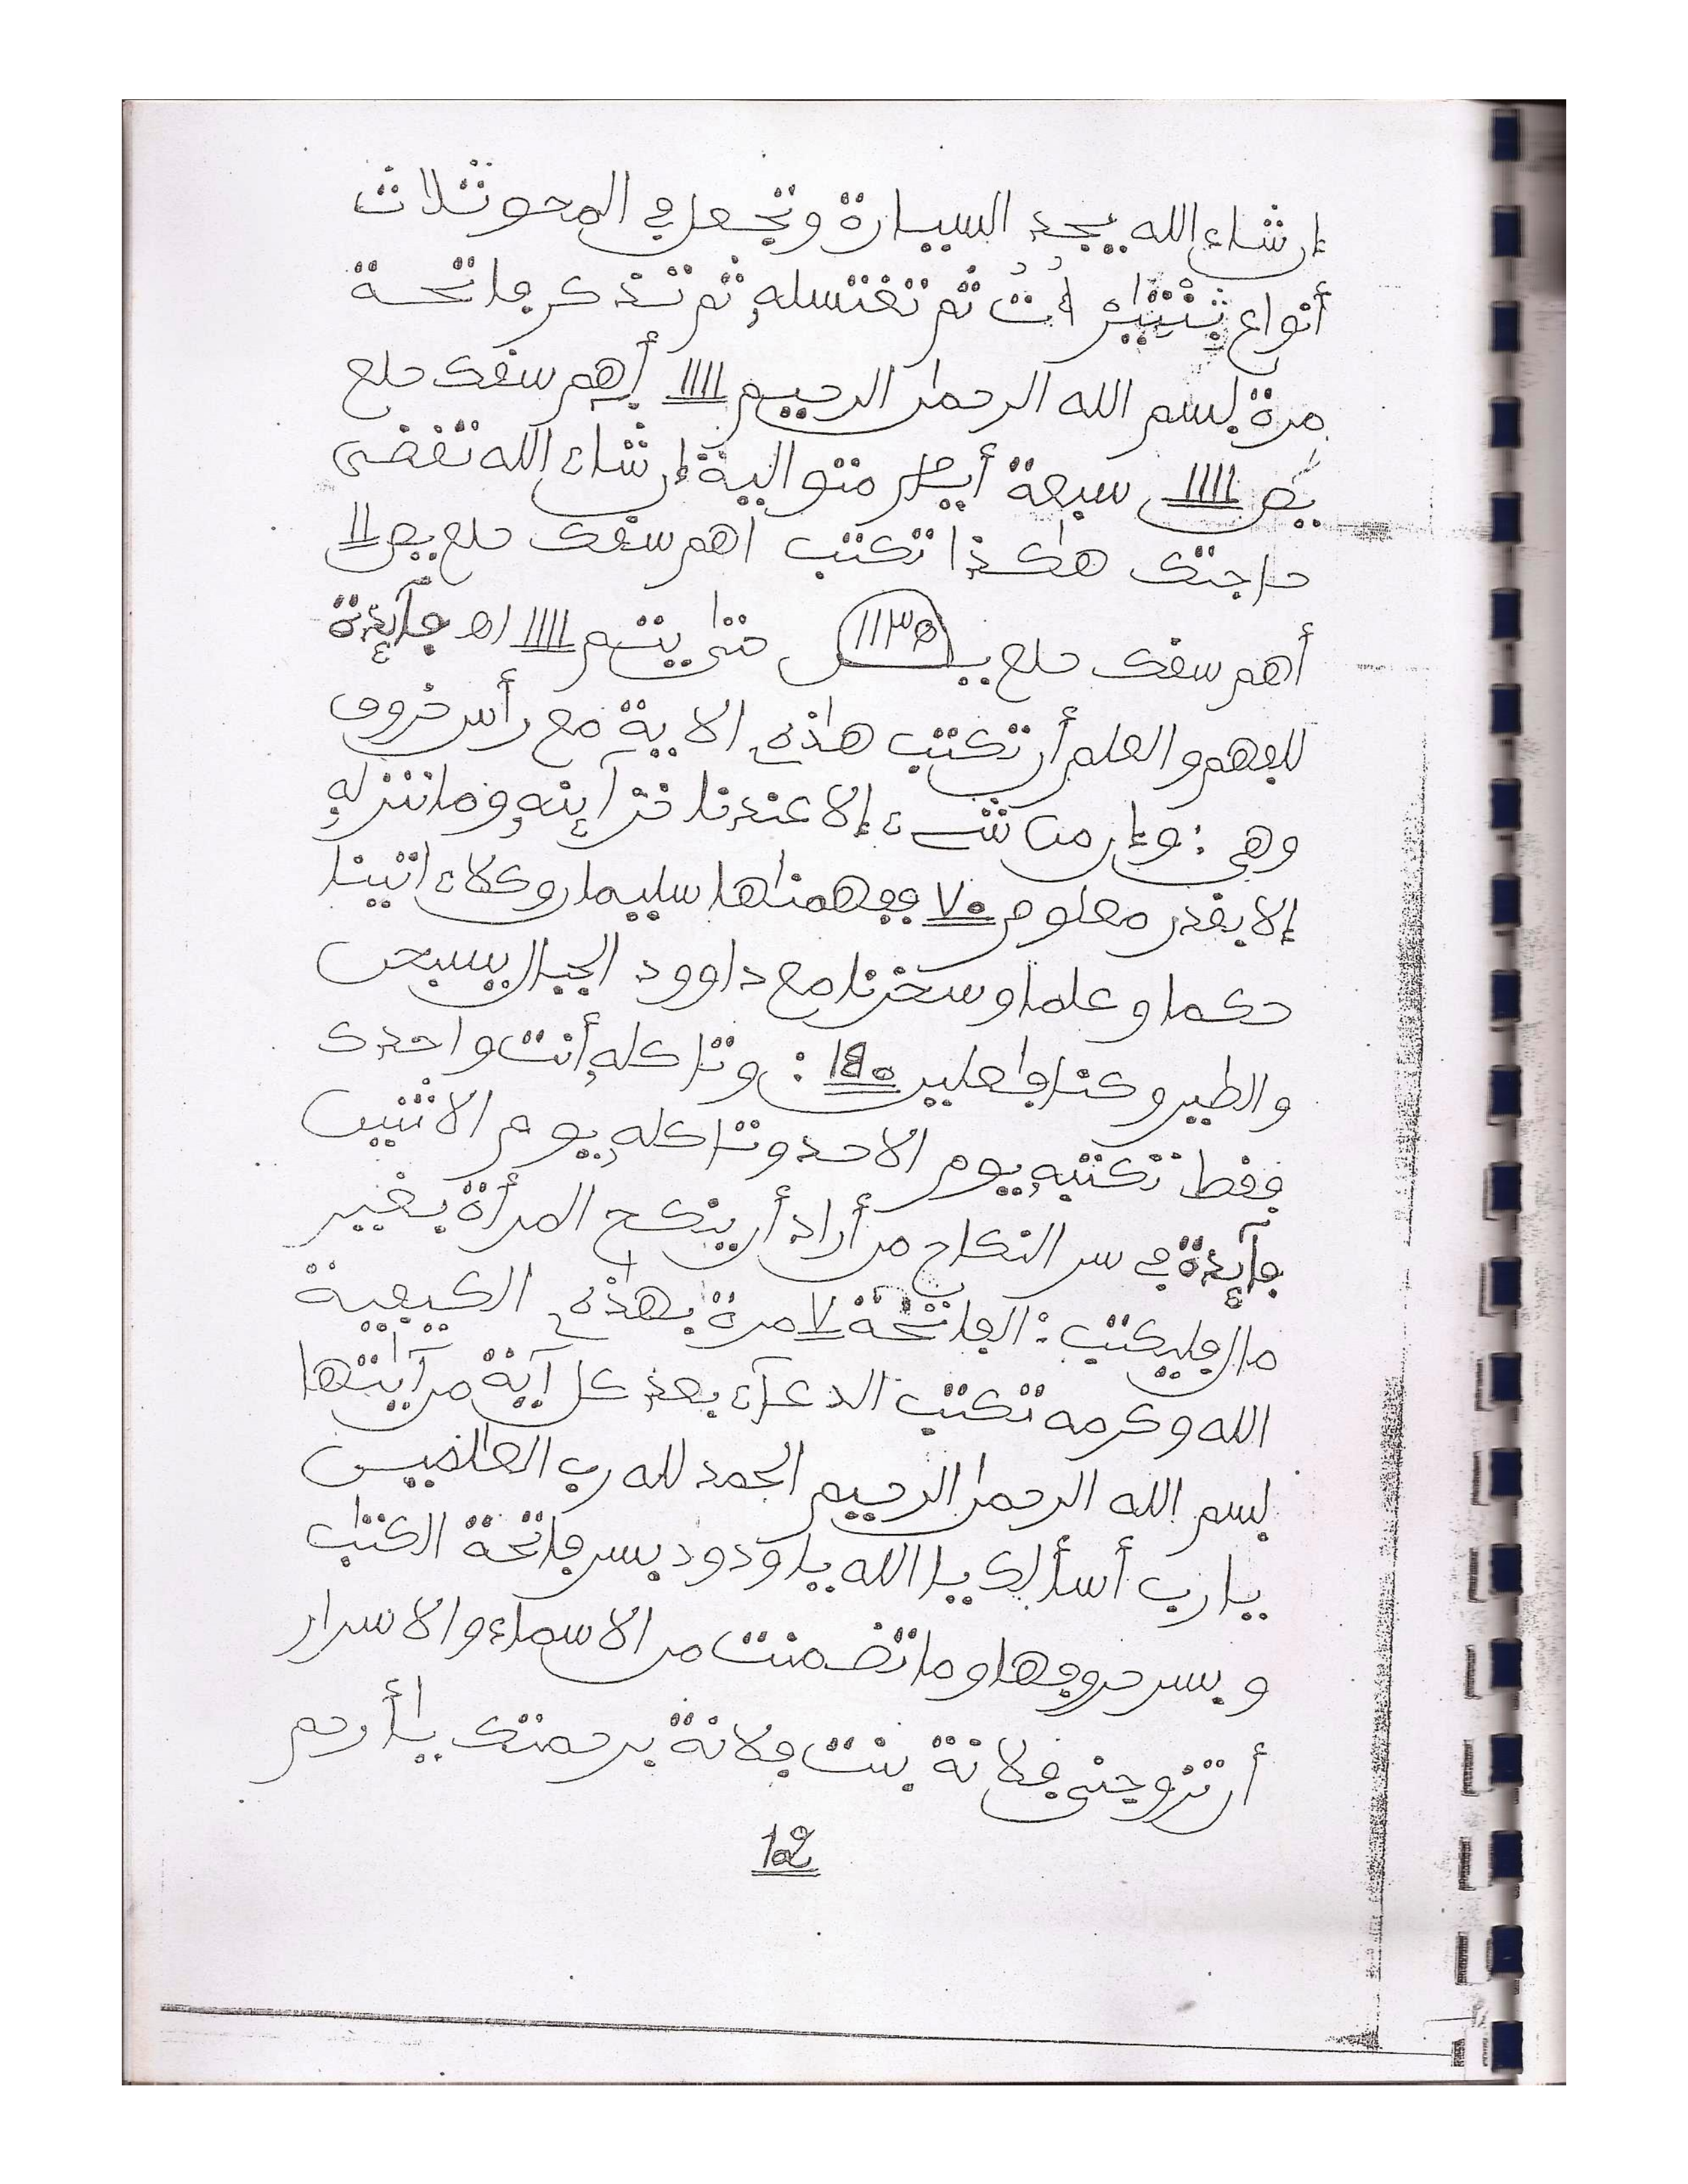 إن شاء الله يجد السيارة وتجعل في المحو ثلاث
أنواع ثم تغتسله ثم تذكر فاتحة
مرة بسم الله الرحمن الرحيم 1111 أهم سقك حلع
يص 1111 سبعة أيام متوالية إن شاء الله تقضى
حاجتك هكذا تكتب أهم سقك حلع يص 11
أهم سقك حلع يـــص 1135 حتى يتم 1111 اه فآئدة
للفهم والعلم أن تكتب هذه الاية مع رأس خروف
وهي: وإن من شىء إلا عندنا خزآئنه وما ننزله
إلا بقدر معلوم 70 ففهمناها سليمان وكلاء اتينا
حكما وعلما وسخرنا مع داوود الجبال يسبحن
والطير وكنا فاعلين 140: وتاكله أنت واحدك
فقط تكتبه يوم الاحد وتاكله يوم الاثنين
فآئدة في سر النكاح من أراد أن ينكح المرأة بغير
مال فليكتب: الفاتحة 7 مرة بهذه الكيفية
الله وكرمه تكتب الدعآء بعد كل آية من آياتها
بسم الله الرحمن الرحيم الحمد لله رب العالمين
يا رب أسألك يا الله يا ودود بسر فاتحة الكتاب
وبسر حروفها وما تضمنت من الاسماء والاسرار
أن تزوجني فلانة بنت فلانة برحمتك يا أرحم
12